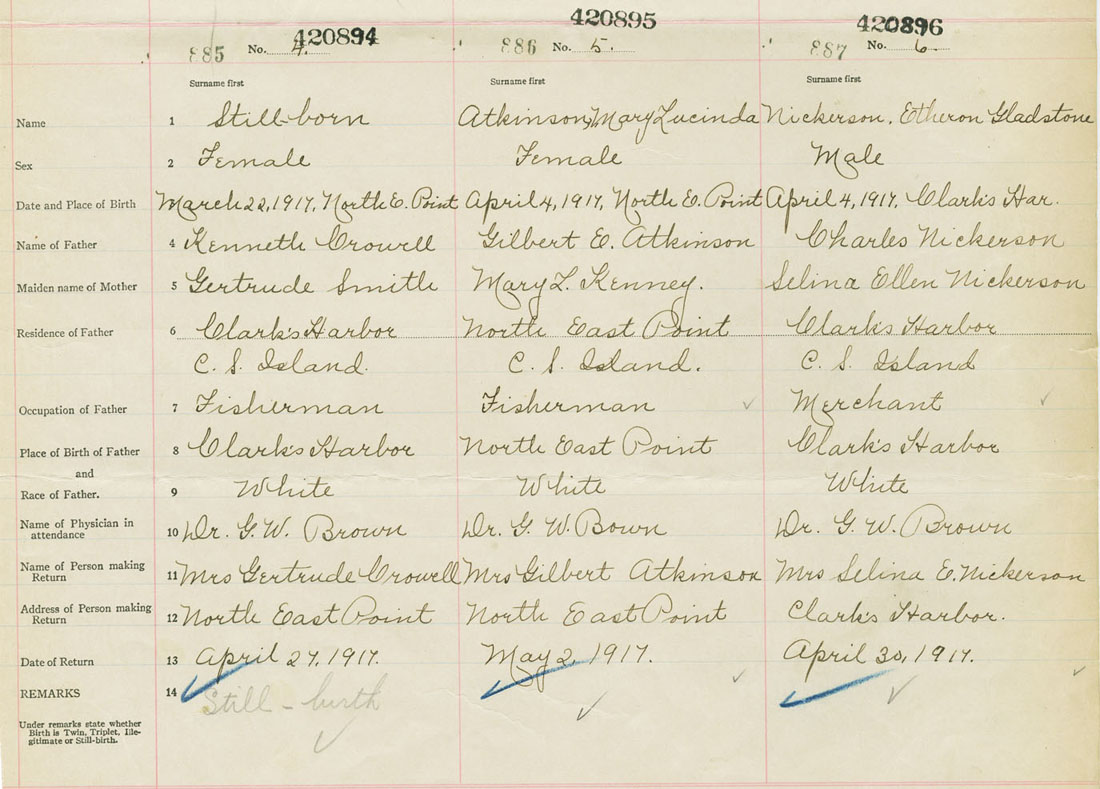 420894 420895 420896
885 No. 4. 886 No. 5. 887 No. 6
Surname first Surname first Surname first
Name 1 Still-born Atkinson, Mary Lucinda Nickerson, Etheron Gladstone
Sex 2 Female Female Male
Date and Place of Birth March 22, 1917, North E. Point April 4, 1917, North E. Point April 4, 1917, Clark's Har.
Name of Father 4 Kenneth Crowell Gilbert E. Atkinson Charles Nickerson
Maiden name of Mother 5 Gertrude Smith Mary L. Kenney. Selina Ellen Nickerson
Residence of Father 6 Clark's Harbor North East Point Clark's Harbor
C. S. Island. C. S. Island. C. S Island
Occupation of Father 7 Fisherman Fisherman Merchant
Place of Birth of Father 8 Clark's Harbor North East Point Clark's Harbor
and
Race of Father. 9 White White White
Name of Physician in
attendance 10 Dr. G. W. Brown Dr. G. W. Bown Dr. G. W. Brown
Name of Person making
Return 11 Mrs Gertrude Crowell Mrs Gilbert Atkinson Mrs Selina E. Nickerson
Address of Person making
Return 12 North East Point North East Point Clark's Harbor.
Date of Return 13 April 27, 1917. May 2, 1917. April 30, 1917.
REMARKS 14 Still - birth
Under remarks state whether
Birth is Twin, Triplet, Ille-
gitimate or Still-birth.